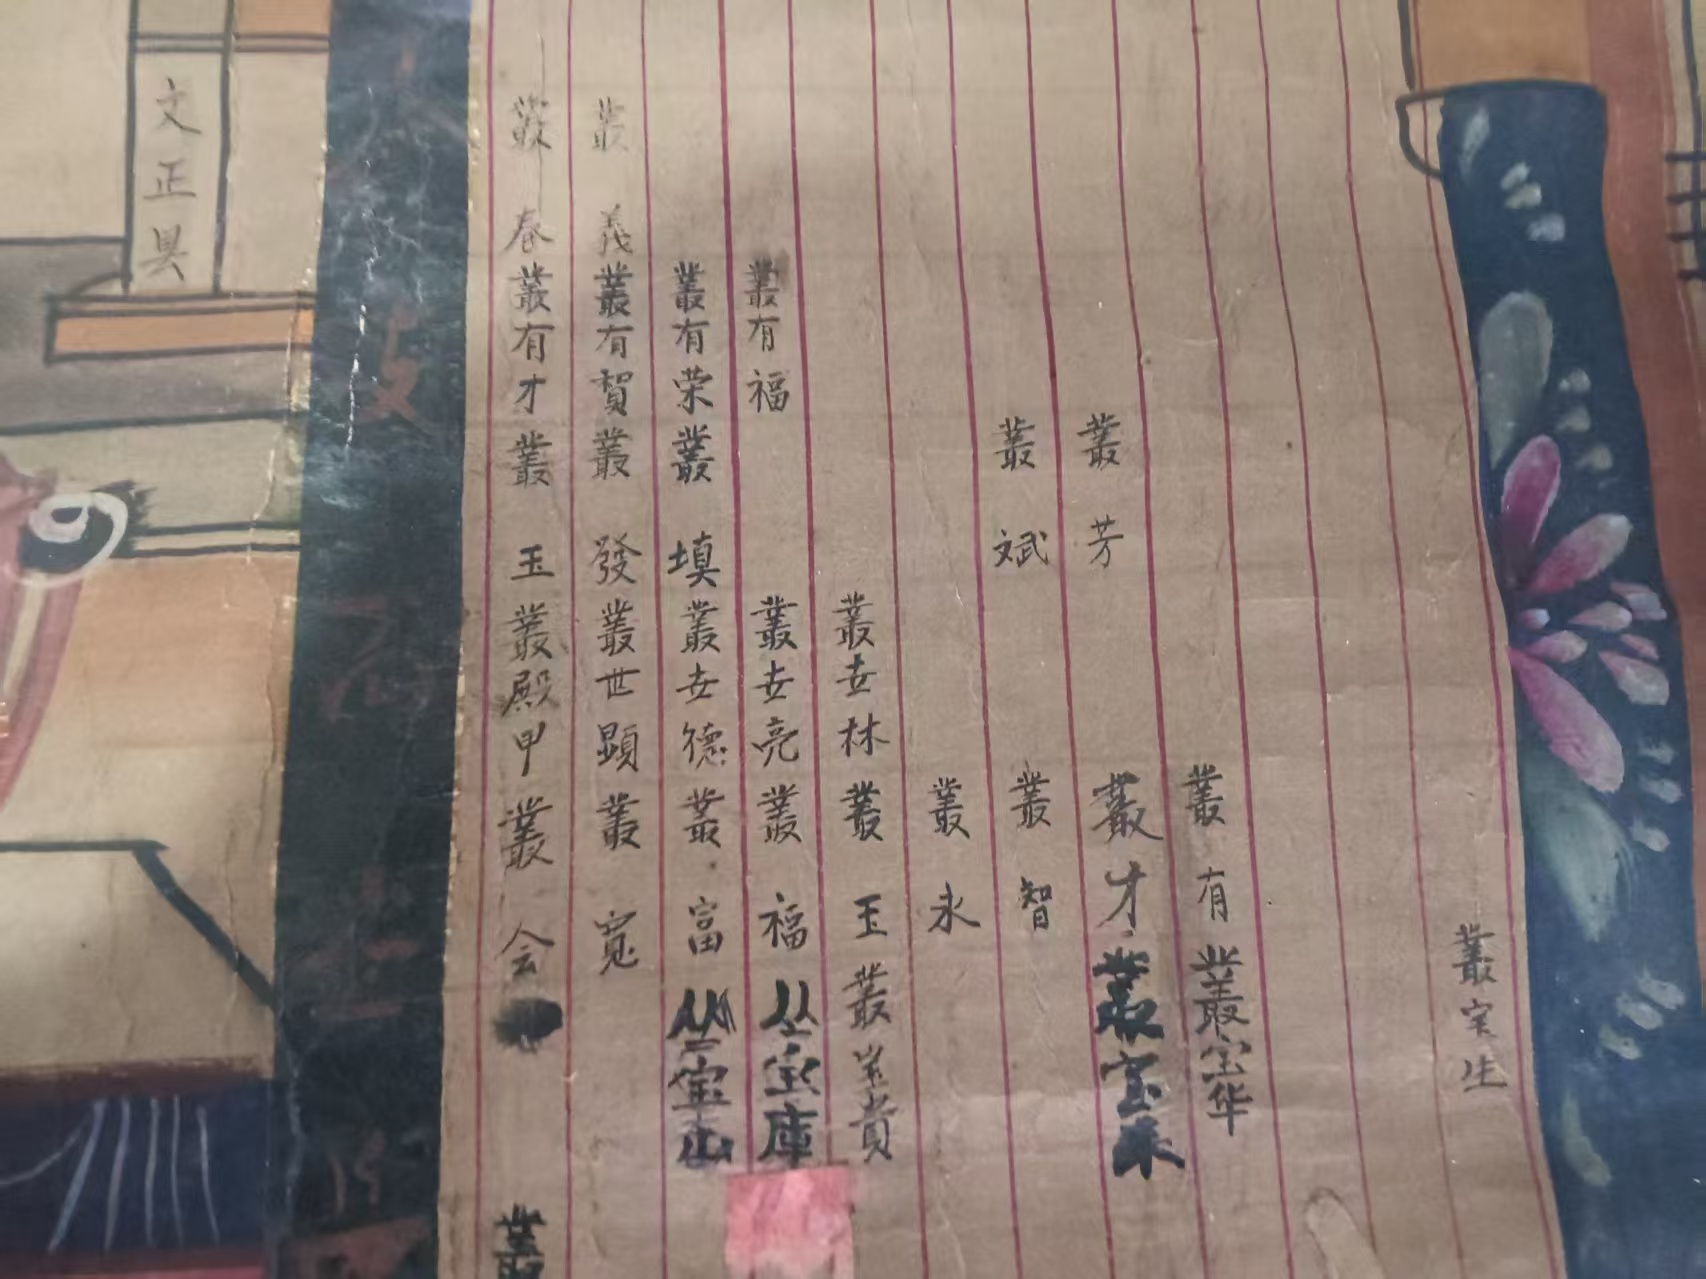 文正
叢春
叢義
叢有才
叢有賀
叢有荣
叢有福
叢玉
叢發
叢填
叢斌
叢芳
叢殿甲
叢世顕
叢世德
叢世亮
叢世林
叢会
叢寬
叢富
叢福
叢玉
叢永
叢智
叢才
叢有
丛宝山
丛宝庫
叢宝貴
叢宝来
叢宝华
叢宝生
叢